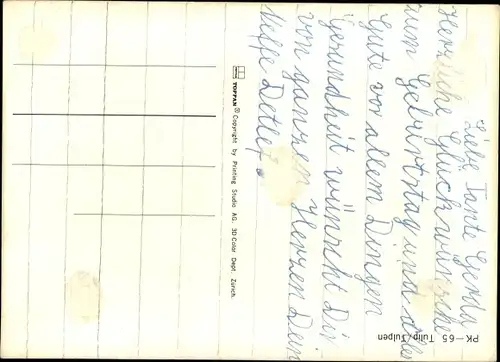 Liebe Tante Gerda,
Herzliche Glückwünsche
zum Geburtstag und alles
Gute vor allem Dingen
Gesundheit wünscht Dir
von ganzen Herzen Dein
Neffe Detlef.
TOPPAN® Copyright by Printing Studio AG. 3D-Color Dept. Zürich.
PK—65 Tulip/Tulpen